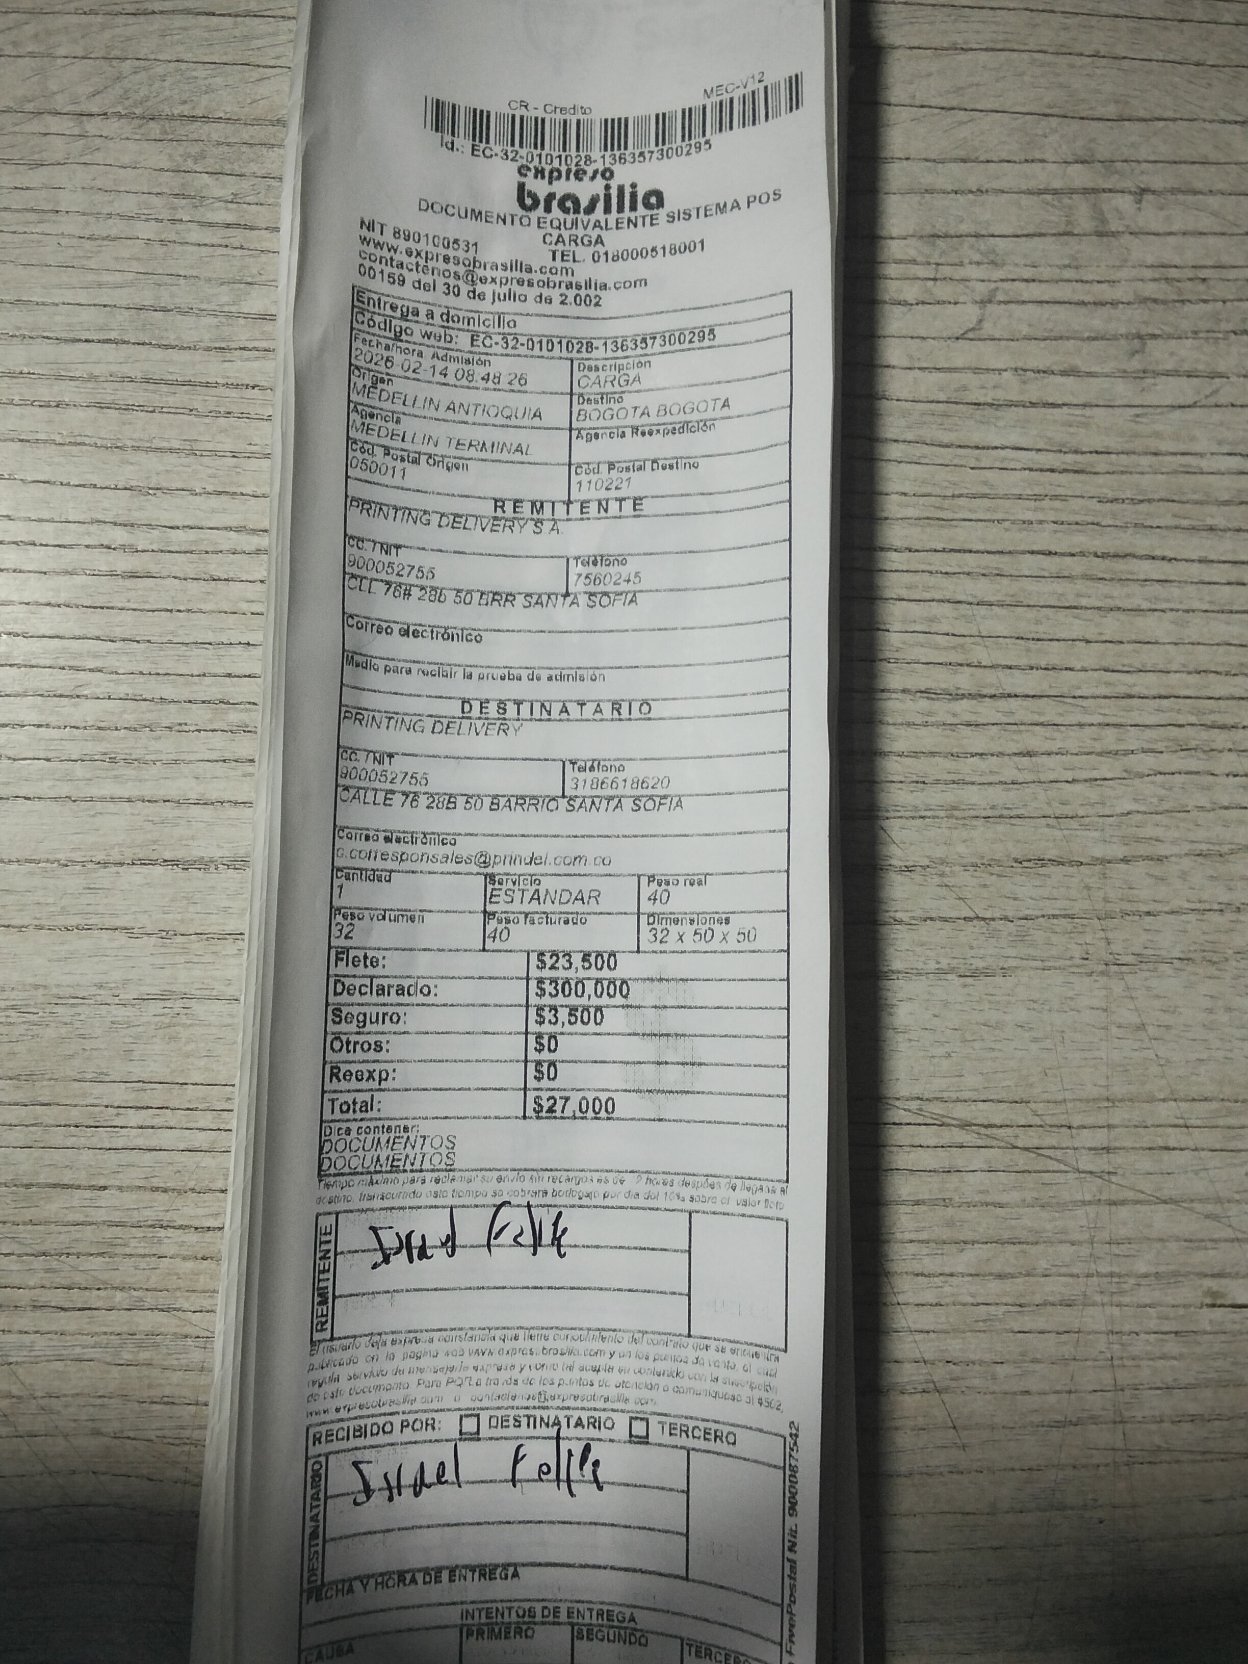 CR - Credito
MEC-V12
Id.: EC-32-0101028-136357300295
expreso
brasilia
DOCUMENTO EQUIVALENTE SISTEMA POS
CARGA
NIT 890100531
TEL. 018000518001
www.expresobrasilia.com
contactenos@expresobrasilia.com
00159 del 30 de julio de 2.002
Entrega a domicilio
Código web: EC-32-0101028-136357300295
Fecha/hora Admisión
2026-02-14 08:48:26
Descripción
CARGA
Origen
MEDELLIN ANTIOQUIA
Destino
BOGOTA BOGOTA
Agencia
MEDELLIN TERMINAL
Agencia Reexpedición
Cód. Postal Origen
050011
Cód. Postal Destino
110221
REMITENTE
PRINTING DELIVERY S A.
CC. / NIT
900052755
Teléfono
7560245
CLL 76# 28b 50 BRR SANTA SOFIA
Correo electrónico
Medio para recibir la prueba de admisión
DESTINATARIO
PRINTING DELIVERY
CC. / NIT
900052755
Teléfono
3186618620
CALLE 76 28B 50 BARRIO SANTA SOFIA
Correo electrónico
c.corresponsales@prindel.com.co
Cantidad
1
Servicio
ESTANDAR
Peso real
40
Peso volumen
32
Peso facturado
40
Dimensiones
32 x 50 x 50
Flete: $23,500
Declarado: $300,000
Seguro: $3,500
Otros: $0
Reexp: $0
Total: $27,000
Dice contener:
DOCUMENTOS
DOCUMENTOS
Tiempo máximo para reclamar su envío sin recargos es de 2 horas después de llegada al
destino, transcurrido este tiempo se cobrara bodegaje por dia del 10% sobre el valor flete
REMITENTE
Israel Felipe
El usuario deja expresa constancia que tiene conocimiento del contrato que se encuentra
publicado en la pagina web www.expresobrasilia.com y en los puntos de venta, el cual
regula servicio de mensajería expresa y como tal acepta su contenido con la suscripción
de este documento. Para PQR a través de los puntos de atención o comuniquese al #502,
www.expresobrasilia.com o contactenos@expresobrasilia.com
RECIBIDO POR: DESTINATARIO TERCERO
DESTINATARIO
Israel Felipe
FECHA Y HORA DE ENTREGA
INTENTOS DE ENTREGA
CAUSA
PRIMERO
SEGUNDO
TERCERO
FivePostal Nit. 900087542